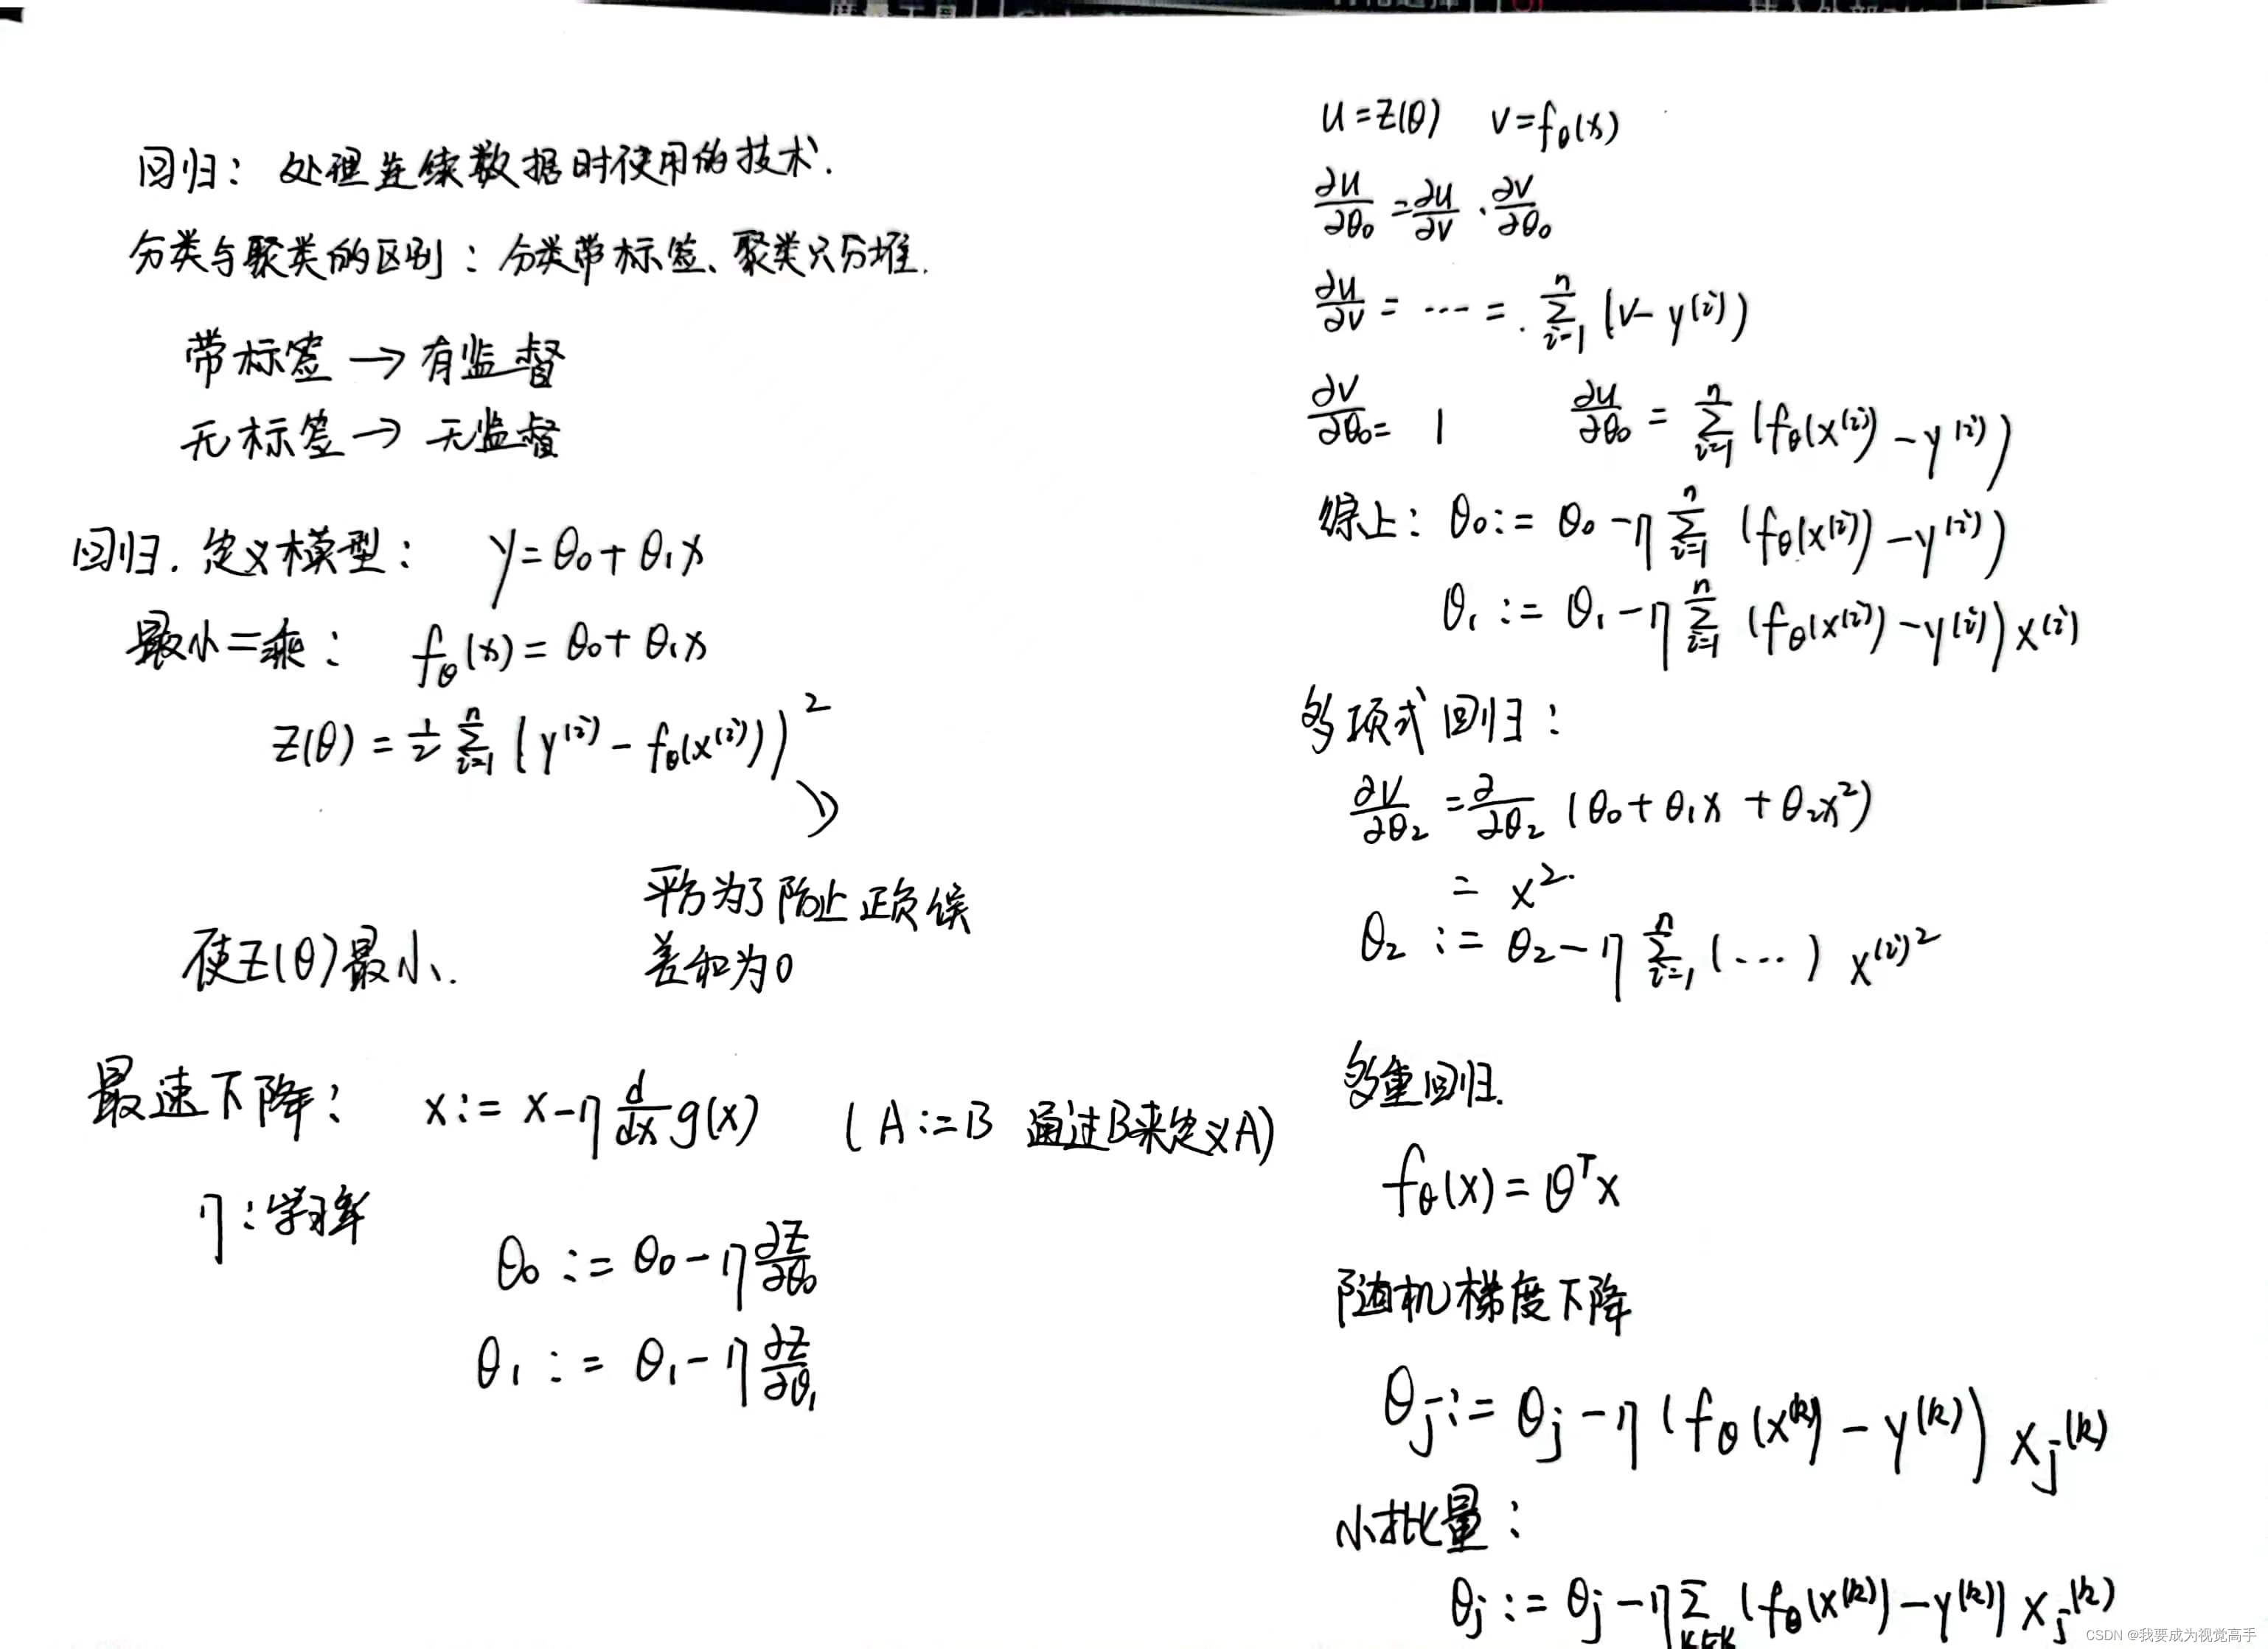 回归：处理连续数据时使用的技术.
分类与聚类的区别：分类带标签、聚类只分堆.
带标签 → 有监督
无标签 → 无监督
回归. 定义模型： y = θ₀ + θ₁x
最小二乘： f_θ(x) = θ₀ + θ₁x
Z(θ) = 1/2 Σ_{i=1}^{n} (y^{(i)} - f_θ(x^{(i)}))²
平方为了防止正负误
差和为0
使Z(θ)最小.
最速下降： x := x - η d/dx g(x) (A := B 通过B来定义A)
η：学习率
θ₀ := θ₀ - η ∂Z/∂θ₀
θ₁ := θ₁ - η ∂Z/∂θ₁
u = Z(θ) v = f_θ(x)
∂u/∂θ₀ = ∂u/∂v · ∂v/∂θ₀
∂u/∂v = ··· = Σ_{i=1}^{n} (v - y^{(i)})
∂v/∂θ₀ = 1 ∂u/∂θ₀ = Σ_{i=1}^{n} (f_θ(x^{(i)}) - y^{(i)})
综上： θ₀ := θ₀ - η Σ_{i=1}^{n} (f_θ(x^{(i)}) - y^{(i)})
θ₁ := θ₁ - η Σ_{i=1}^{n} (f_θ(x^{(i)}) - y^{(i)}) x^{(i)}
多项式回归：
∂v/∂θ₂ = ∂/∂θ₂ (θ₀ + θ₁x + θ₂x²)
= x²
θ₂ := θ₂ - η Σ_{i=1}^{n} (···) x^{(i)2}
多重回归.
f_θ(x) = θ^T x
随机梯度下降
θ_j := θ_j - η (f_θ(x^{(k)}) - y^{(k)}) x_j^{(k)}
小批量：
θ_j := θ_j - η Σ_{k∈K} (f_θ(x^{(k)}) - y^{(k)}) x_j^{(k)}
CSDN @我要成为视觉高手